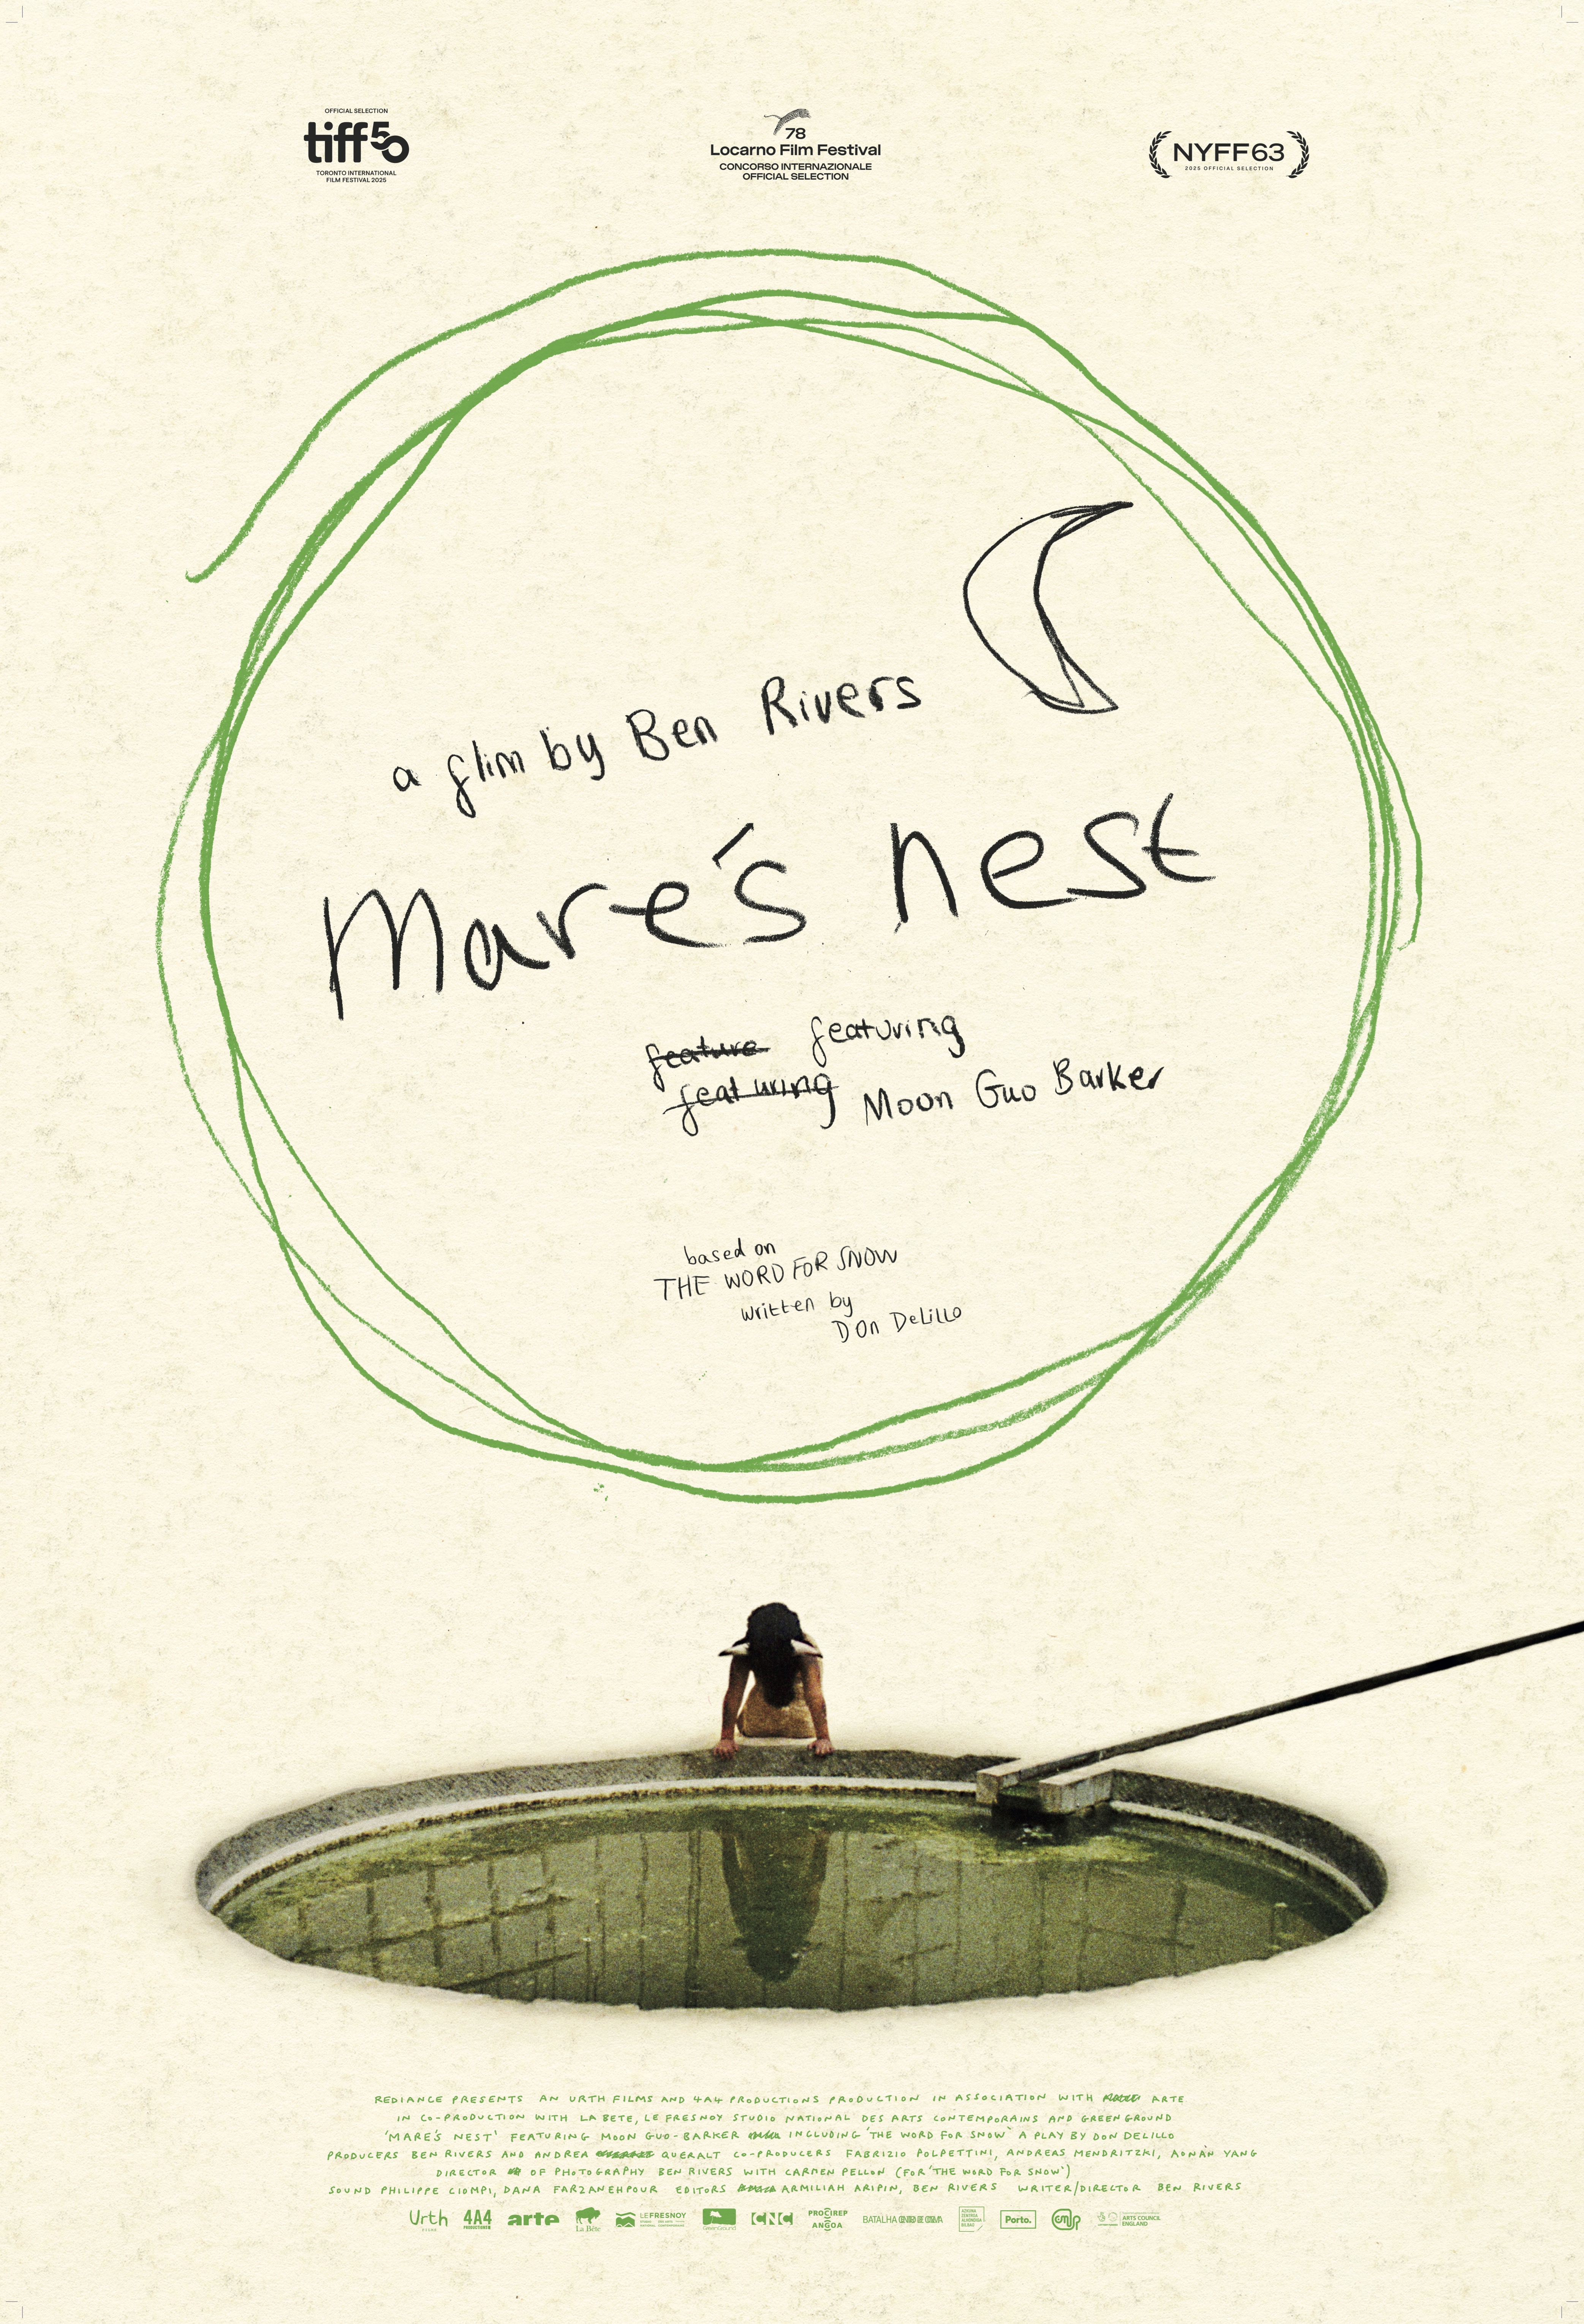 OFFICIAL SELECTION
tiff50
TORONTO INTERNATIONAL
FILM FESTIVAL 2025
78
Locarno Film Festival
CONCORSO INTERNAZIONALE
OFFICIAL SELECTION
NYFF63
2025 OFFICIAL SELECTION
a flim by Ben Rivers
Mare's nest
feature featuring
featuring Moon Guo Barker
based on
THE WORD FOR SNOW
written by
DOn DeLiLLo
REDIANCE PRESENTS AN URTH FILMS AND 4A4 PRODUCTIONS PRODUCTION IN ASSOCIATION WITH ARTE
IN CO-PRODUCTION WITH LA BETE, LE FRESNOY STUDIO NATIONAL DES ARTS CONTEMPORAINS AND GREENGROUND
'MARE'S NEST' FEATURING MOON GUO-BARKER INCLUDING 'THE WORD FOR SNOW' A PLAY BY DON DELILLO
PRODUCERS BEN RIVERS AND ANDREA QUERALT CO-PRODUCERS FABRIZIO POLPETTINI, ANDREAS MENDRITZKI, AONAN YANG
DIRECTOR OF PHOTOGRAPHY BEN RIVERS WITH CARMEN PELLON (FOR 'THE WORD FOR SNOW')
SOUND PHILIPPE CIOMPI, DANA FARZANEHPOUR EDITORS ARMILIAH ARIPIN, BEN RIVERS WRITER/DIRECTOR BEN RIVERS
Urth 4A4 PRODUCTIONS arte La Bête LE FRESNOY CNC PROCIREP ANGOA BATALHA Porto. ARTS COUNCIL ENGLAND